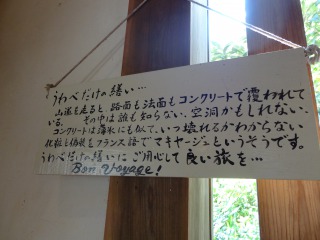 うわべだけの繕い…
山道を走ると、路面も法面もコンクリートで覆われて
いる。 その中は誰も知らない、空洞かもしれない。
コンクリートは薄氷にも似て、いつ壊れるかわからない
化粧と偽装をフランス語でマキヤージュというそうです。
うわべだけの繕いに ご用心して 良い旅を…
Bon Voyage!